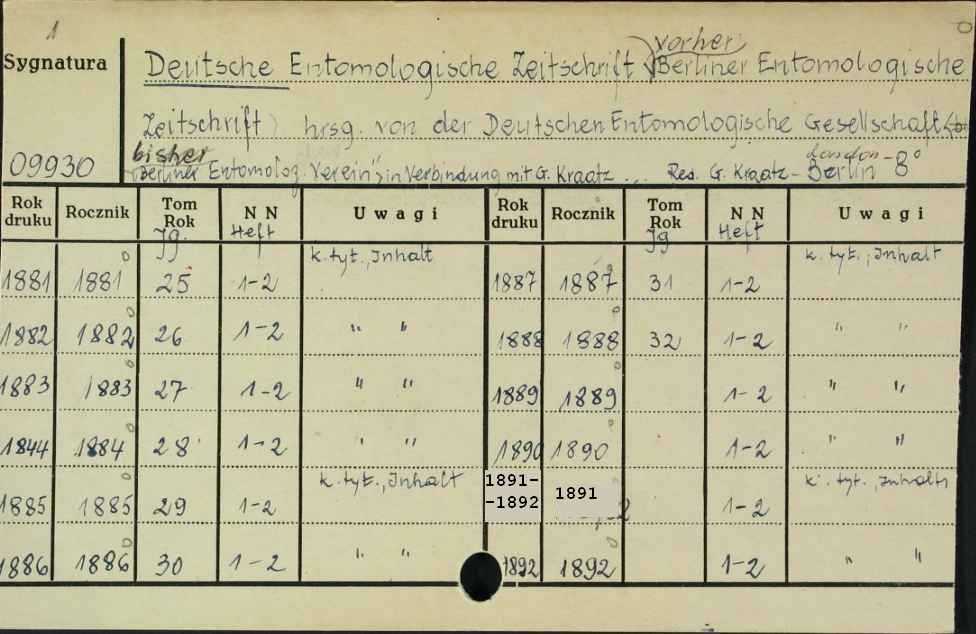 1
vorher
Sygnatura Deutsche Entomologische Zeitschrift (Berliner Entomologische
Zeitschrift) hrsg. von der Deutschen Entomologische Gesellschaft
bisher London
09930 Berliner Entomolog. Verein", in Verbindung mit G. Kraatz ... Red. G. Kraatz - Berlin - 8°
Rok druku Rocznik Tom Rok Jg. N N Heft U w a g i Rok druku Rocznik Tom Rok Jg N N Heft U w a g i
1881 1881 25 1-2 k. tyt., Inhalt 1887 1887 31 1-2 k. tyt., Inhalt
1882 1882 26 1-2 " " 1888 1888 32 1-2 " "
1883 1883 27 1-2 " " 1889 1889 1-2 " "
1844 1884 28 1-2 " " 1890 1890 1-2 " "
1885 1885 29 1-2 k. tyt., Inhalt 1891--1892 1891 1-2 k. tyt., Inhalts
1886 1886 30 1-2 " " 1892 1892 1-2 " "